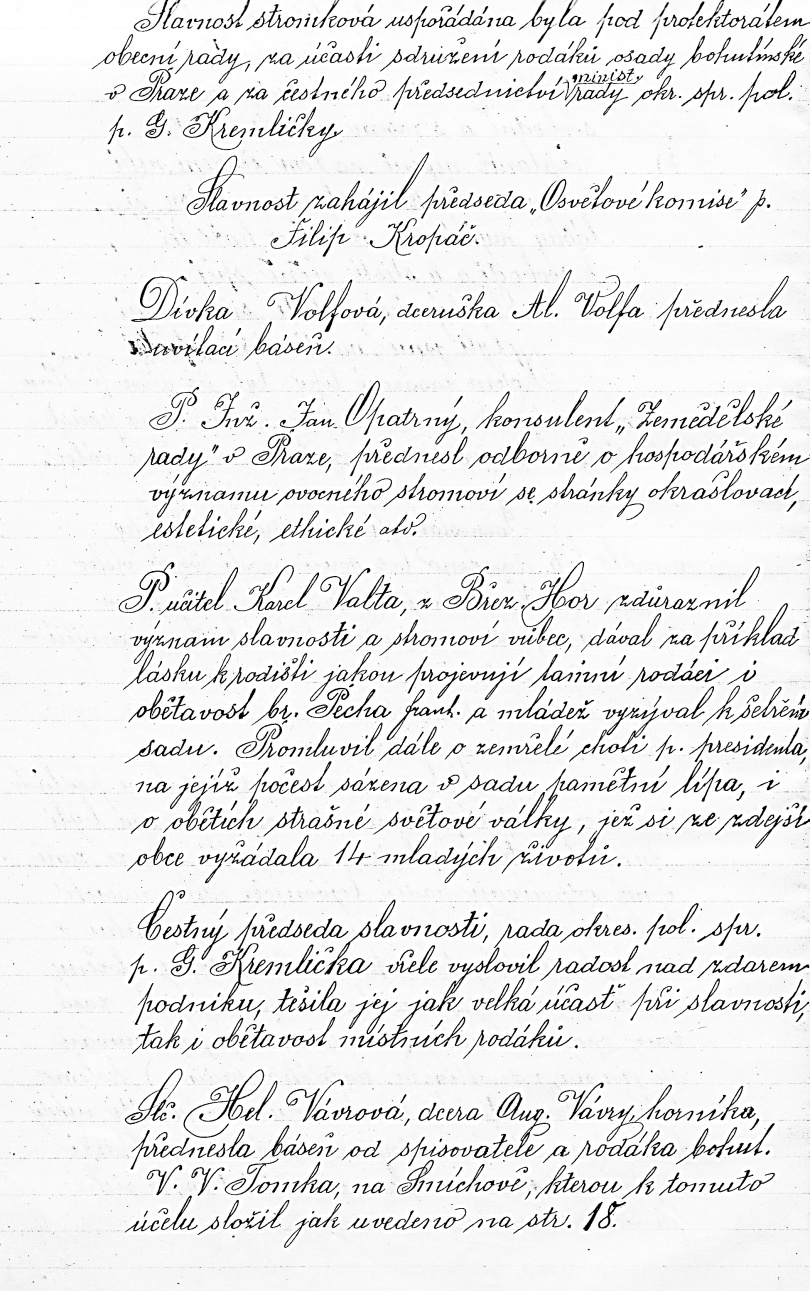 Slavnost stromková uspořádána byla pod protektorátem
obecní rady, za účasti sdružení rodáků osady bohutínské
v Praze a za čestného předsednictví minist. rady okr. spr. pol.
p. G. Kremličky.
Slavnost zahájil předseda „Osvětové komise" p.
Filip Kropáč.
Dívka Volfová, dceruška Al. Volfa přednesla
uvítací báseň.
P. Inž. Jan Opatrný, konsulent „Zemědělské
rady" v Praze, přednesl odborně o hospodářském
významu ovocného stromoví se stránky okrašlovací,
estetické, ethické atd.
P. učitel Karel Valta, z Břez. Hor zdůraznil
význam slavnosti a stromoví vůbec, dával za příklad
lásku k rodišti jakou projevují tamní rodáci i
obětavost br. Pécha frant. a mládež vyzýval k šetření
sadu. Promluvil dále o zemřelé choti p. presidenta,
na jejíž počest sázena v sadu pamětní lípa, i
o obětích strašné světové války, jež si ze zdejší
obce vyžádala 14 mladých životů.
Čestný předseda slavnosti, rada okres. pol. spr.
p. G. Kremlička vřele vyslovil radost nad zdarem
podniku, těšila jej jak velká účasť při slavnosti,
tak i obětavost místních rodáků.
Slč. Hel. Vávrová, dcera Aug. Vávry, horníka,
přednesla báseň od spisovatele a rodáka bohut.
V. V. Tomka, na Smíchově, kterou k tomuto
účelu složil jak uvedeno na str. 18.